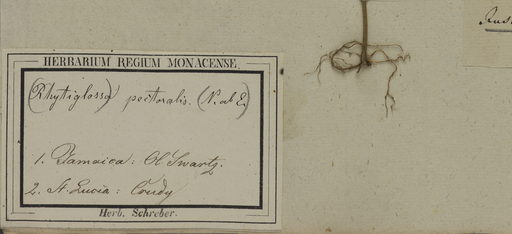 HERBARIUM REGIUM MONACENSE.
(Rhytiglossa) pectoralis. (N. ab E.)
1. Jamaica: Ol Swartz.
2. St. Lucia:
Herb. Schreber.